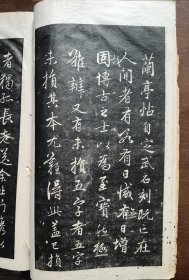 蘭亭帖自定武石刻既亡在
人間者有數有日減無日增
故博古之士以為至寶然極
難辨又有未損五字者五字
未損其本尤難得此蓋已損
者獨孤長老送余北行攜